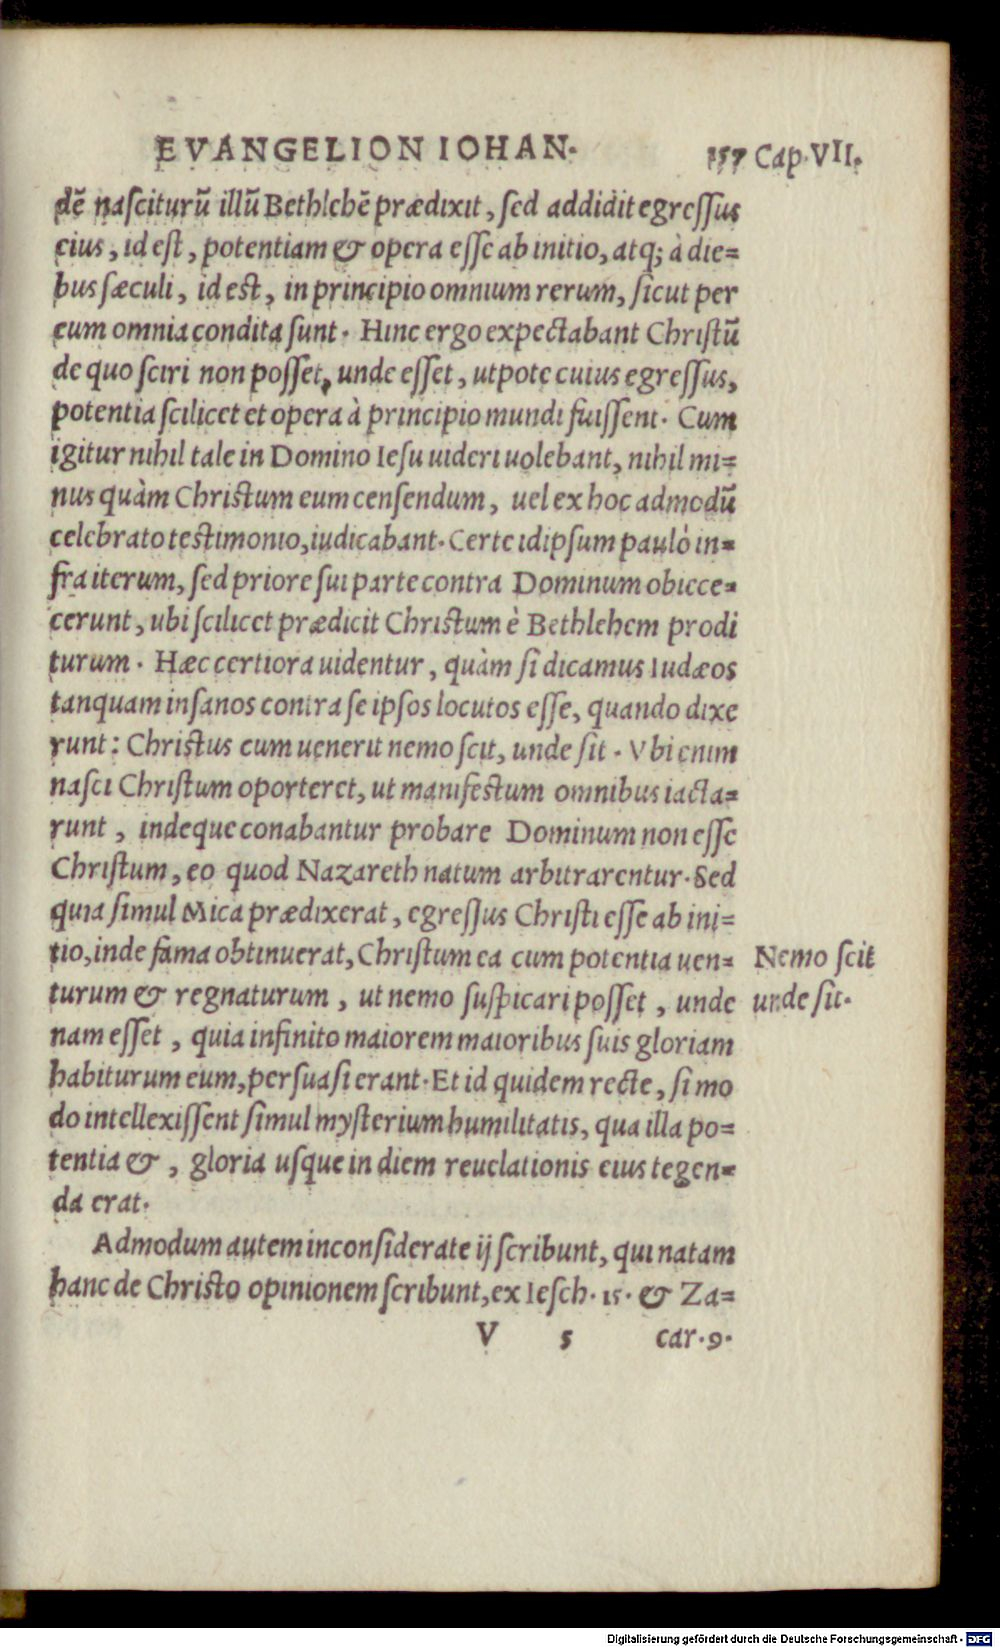 EVANGELION IOHAN. 157 Cap. VII.
dē nasciturū illū Bethlehē prædixit, sed addidit egressus
eius, id est, potentiam & opera esse ab initio, atq; à die=
bus sæculi, id est, in principio omnium rerum, sicut per
eum omnia condita sunt. Hinc ergo expectabant Christū
de quo sciri non posset, unde esset, utpote cuius egressus,
potentia scilicet et opera à principio mundi fuissent. Cum
igitur nihil tale in Domino Iesu uideri uolebant, nihil mi=
nus quàm Christum eum censendum, uel ex hoc admodū
celebrato testimonio, iudicabant. Certe idipsum paulò in=
fra iterum, sed priore sui parte contra Dominum obiece=
cerunt, ubi scilicet prædicit Christum è Bethlehem prodi
turum. Hæc certiora uidentur, quàm si dicamus Iudæos
tanquam insanos contra se ipsos locutos esse, quando dixe
runt: Christus cum uenerit nemo scit, unde sit. Vbi enim
nasci Christum oporteret, ut manifestum omnibus iacta=
runt, indeque conabantur probare Dominum non esse
Christum, eo quod Nazareth natum arbitrarentur. Sed
quia simul Mica prædixerat, egressus Christi esse ab ini=
tio, inde fama obtinuerat, Christum ea cum potentia uen=
turum & regnaturum, ut nemo suspicari posset, unde
nam esset, quia infinito maiorem maioribus suis gloriam
habiturum eum, persuasi erant. Et id quidem recte, si mo
do intellexissent simul mysterium humilitatis, qua illa po=
tentia &, gloria usque in diem reuelationis eius tegen=
da erat.
Nemo scit
unde sit.
Admodum autem inconsiderate ij scribunt, qui natam
hanc de Christo opinionem scribunt, ex Iesch. 15. & Za=
V 5 car. 9.
Digitalisierung gefördert durch die Deutsche Forschungsgemeinschaft - DFG